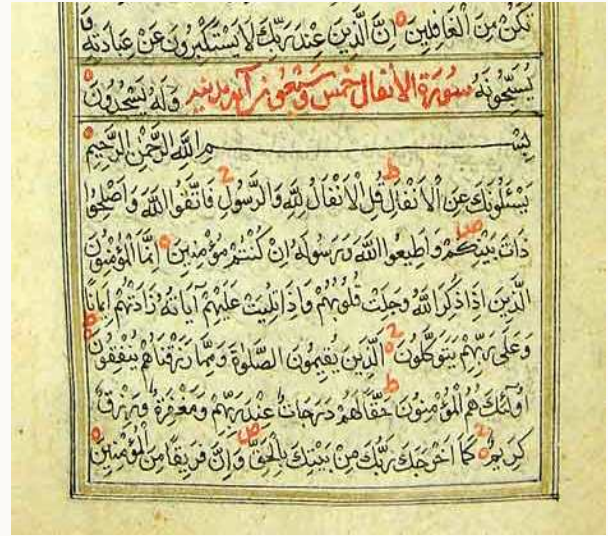 تَكُنْ مِنَ الْغَافِلِينَ اِنَّ الَّذِينَ عِنْدَ رَبِّكَ لَا يَسْتَكْبِرُونَ عَنْ عِبَادَتِهِ
يُسَبِّحُونَهُ سورة الأنفال خمس وسبعون وَلَهُ يَسْجُدُونَ
بِسْمِ اللَّهِ الرَّحْمٰنِ الرَّحِيمِ
يَسْئَلُونَكَ عَنِ الْاَنْفَالِ ط قُلِ الْاَنْفَالُ لِلّٰهِ وَالرَّسُولِ فَاتَّقُوا اللَّهَ وَاَصْلِحُوا
ذَاتَ بَيْنِكُمْ ص وَاَطِيعُوا اللَّهَ وَرَسُولَهُ اِنْ كُنْتُمْ مُؤْمِنِينَ اِنَّمَا الْمُؤْمِنُونَ
الَّذِينَ اِذَا ذُكِرَ اللَّهُ وَجِلَتْ قُلُوبُهُمْ وَاِذَا تُلِيَتْ عَلَيْهِمْ آيَاتُهُ زَادَتْهُمْ اِيمَانًا
وَعَلَى رَبِّهِمْ يَتَوَكَّلُونَ اَلَّذِينَ يُقِيمُونَ الصَّلٰوةَ وَمِمَّا رَزَقْنَاهُمْ يُنْفِقُونَ
اُولٰئِكَ هُمُ الْمُؤْمِنُونَ حَقًّا ط لَهُمْ دَرَجَاتٌ عِنْدَ رَبِّهِمْ وَمَغْفِرَةٌ وَرِزْقٌ
كَرِيمٌ كَمَا اَخْرَجَكَ رَبُّكَ مِنْ بَيْتِكَ بِالْحَقِّ ص وَاِنَّ فَرِيقًا مِنَ الْمُؤْمِنِينَ